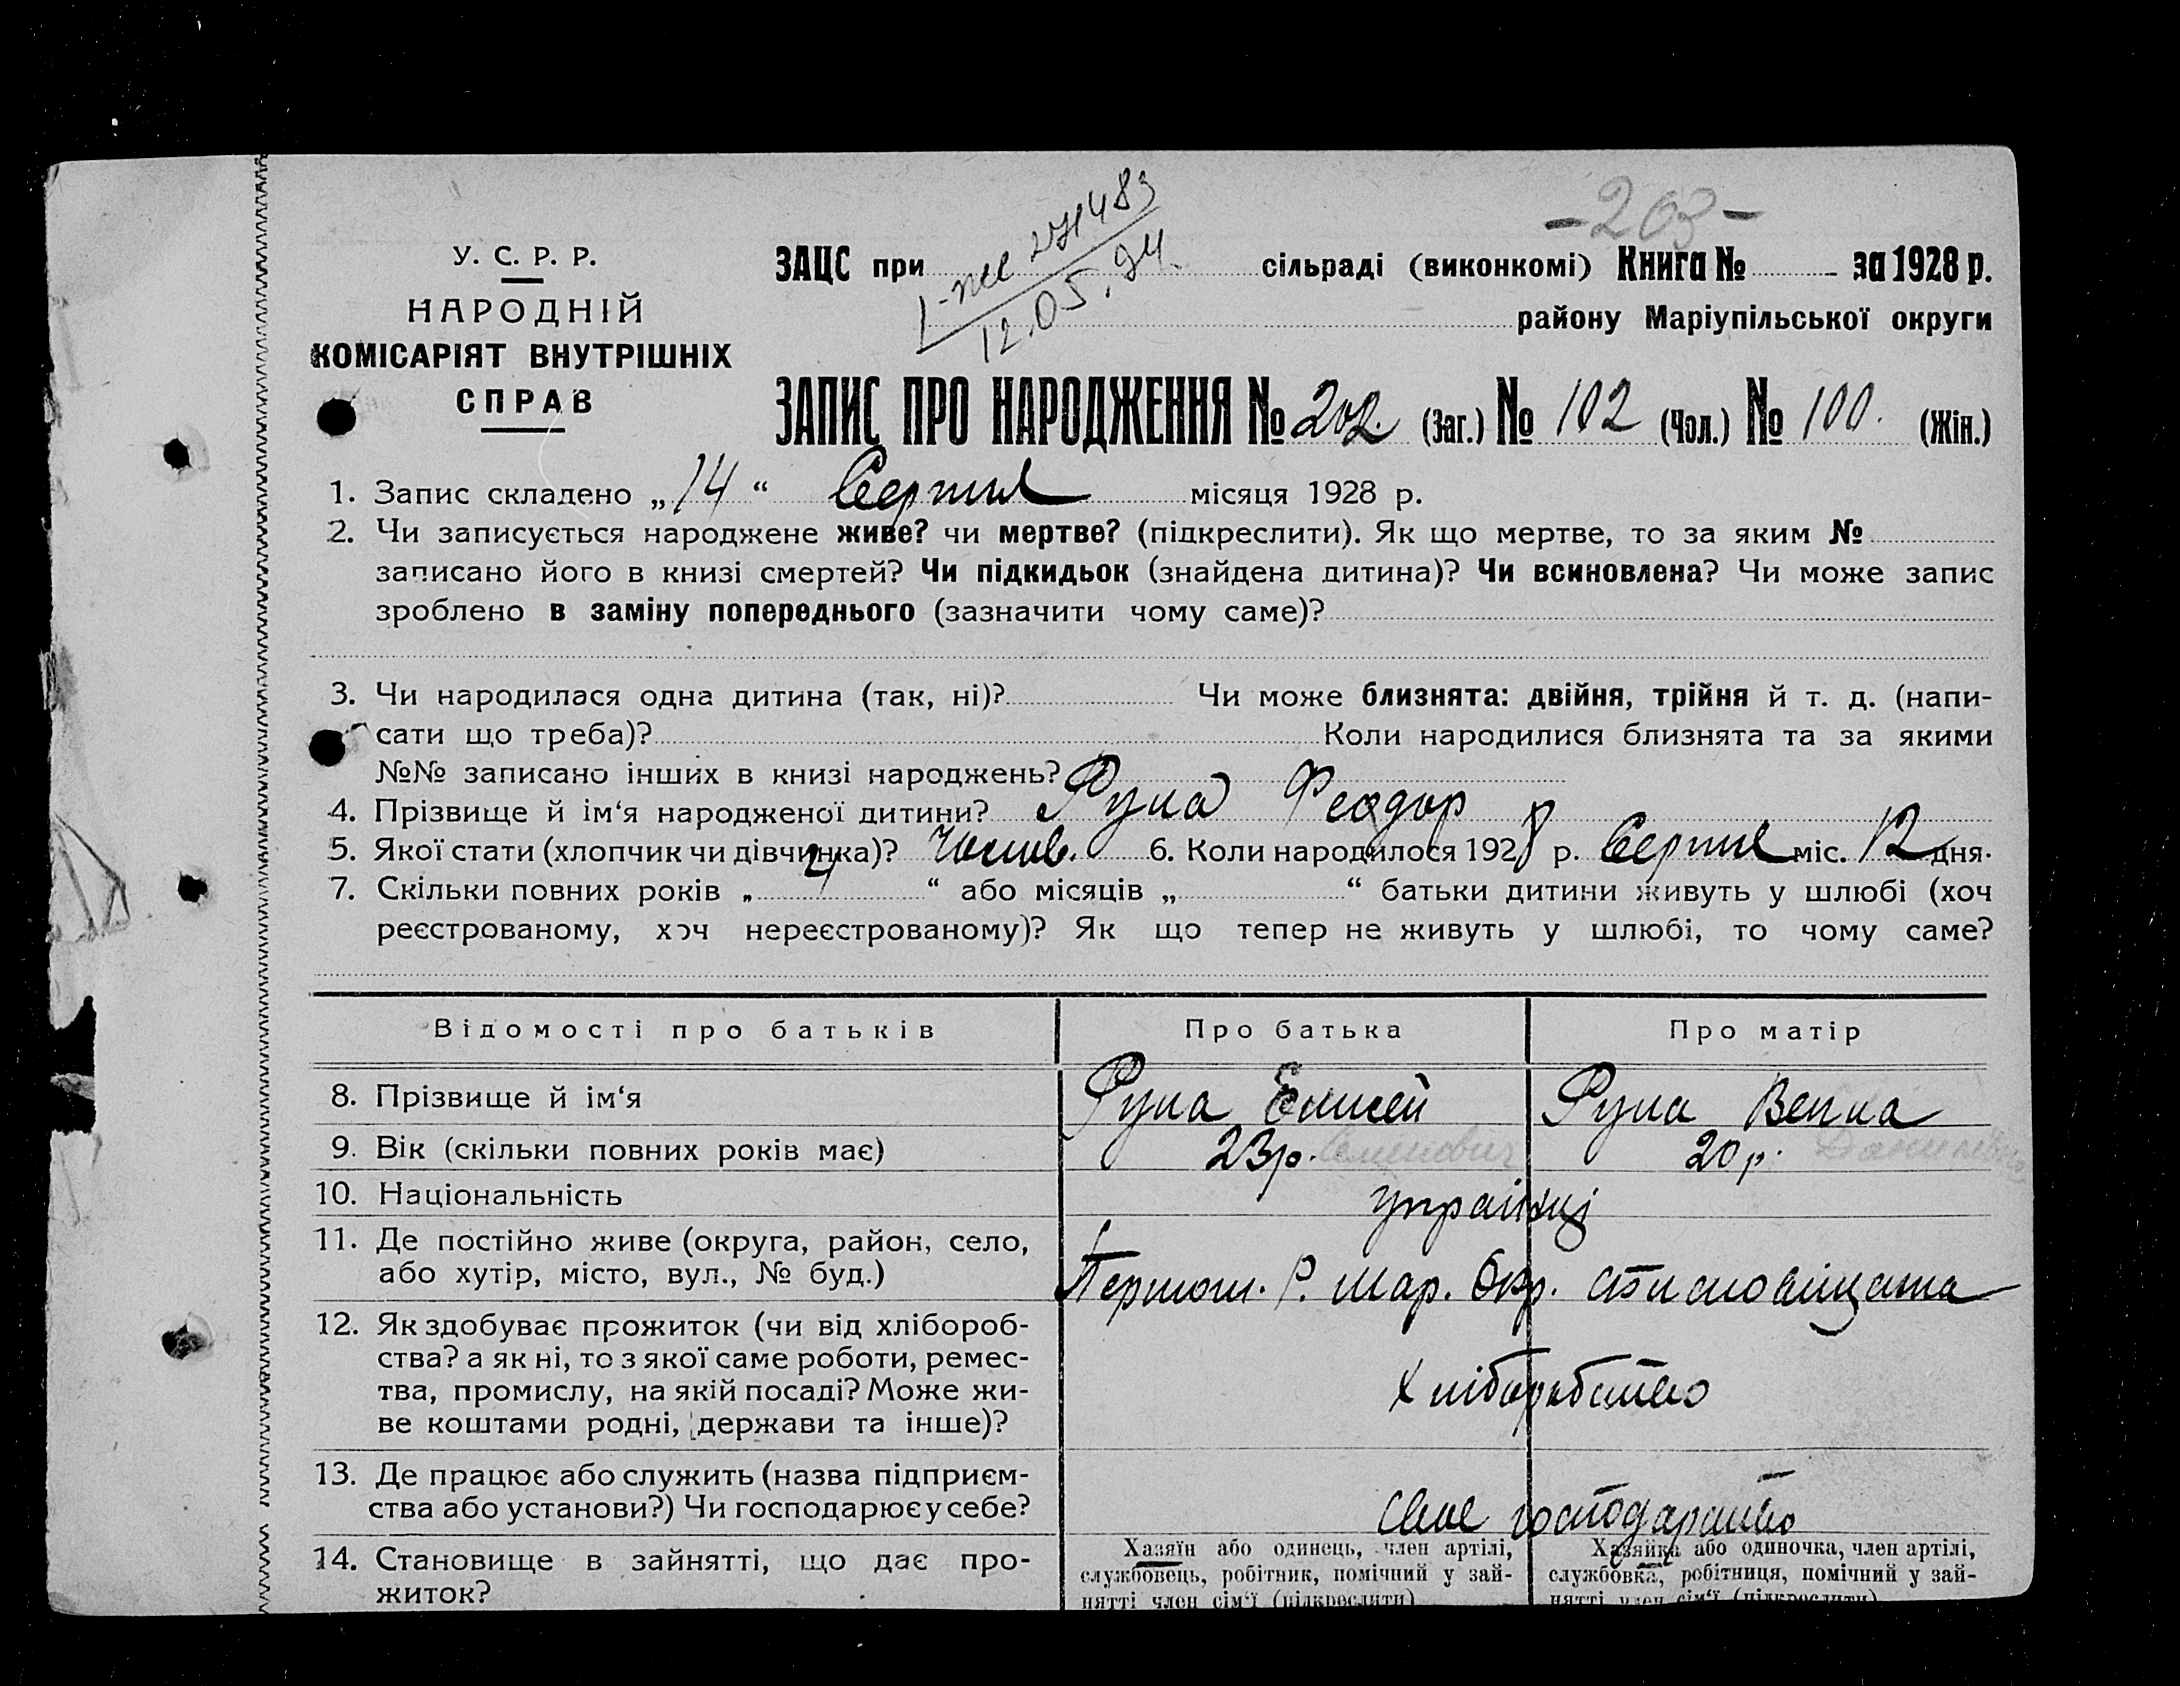 - 203 -
І-ЖС 271483
12.05.94.
У. С. Р. Р.
НАРОДНІЙ
КОМІСАРІЯТ ВНУТРІШНІХ
СПРАВ
ЗАЦС при сільраді (виконкомі) Книга № за 1928 р.
району Маріупільської округи
ЗАПИС ПРО НАРОДЖЕННЯ № 202. (Заг.) № 102 (Чол.) № 100. (Жін.)
1. Запис складено „ 14 “ Серпня місяця 1928 р.
2. Чи записується народжене живе? чи мертве? (підкреслити). Як що мертве, то за яким №
записано його в книзі смертей? Чи підкидьок (знайдена дитина)? Чи всиновлена? Чи може запис
зроблено в заміну попереднього (зазначити чому саме)?
3. Чи народилася одна дитина (так, ні)? Чи може близнята: двійня, трійня й т. д. (напи-
сати що треба)? Коли народилися близнята та за якими
№№ записано інших в книзі народжень?
4. Прізвище й ім‘я народженої дитини? Руна Феодор
5. Якої стати (хлопчик чи дівчинка)? Чолов. 6. Коли народилося 1928 р. Серпня міс. 12 дня.
7. Скільки повних років „ 4 “ або місяців „ “ батьки дитини живуть у шлюбі (хоч
реєстрованому, хоч нереєстрованому)? Як що тепер не живуть у шлюбі, то чому саме?
Відомості про батьків Про батька Про матір
8. Прізвище й ім‘я Руна Елисей Руна Векла
9. Вік (скільки повних років має) 23р. Семенович 20р. Даниловна
10. Національність українці
11. Де постійно живе (округа, район, село,
або хутір, місто, вул., № буд.) Першот. Р. Мар. Окр.
12. Як здобуває прожиток (чи від хлібороб-
ства? а як ні, то з якої саме роботи, ремес-
тва, промислу, на якій посаді? Може жи-
ве коштами родні, держави та інше)? Хліборобство
13. Де працює або служить (назва підприєм-
ства або установи?) Чи господарює у себе? своє господарство
14. Становище в зайнятті, що дає про-
житок?
Хазяїн або одинець, член артілі,
службовець, робітник, помічний у зай-
нятті член сім‘ї (підкреслити)
Хазяйка або одиночка, член артілі,
службовка, робітниця, помічний у зай-
нятті член сім‘ї (підкреслити)